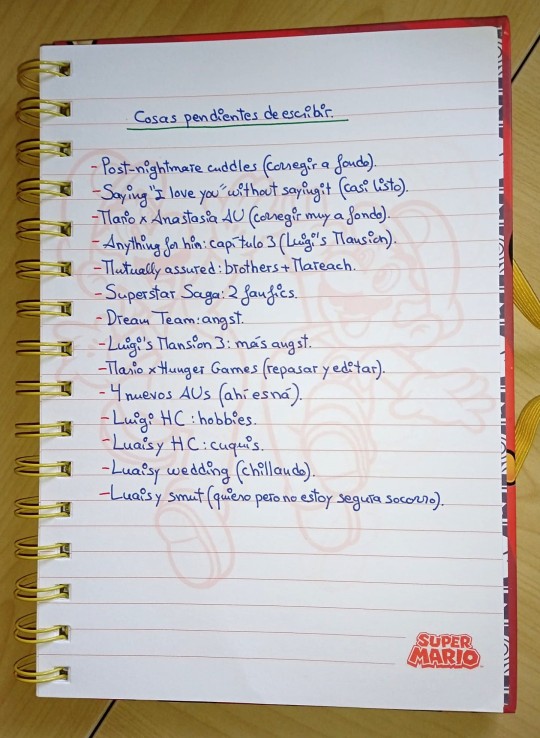 Cosas pendientes de escribir.
- Post-nightmare cuddles (corregir a fondo).
- Saying "I love you" without saying it (casi listo).
- Mario x Anastasia AU (corregir muy a fondo).
- Anything for him: capítulo 3 (Luigi's Mansion).
- Mutually assured: brothers + Mareach.
- Superstar Saga: 2 fanfics.
- Dream Team: angst.
- Luigi's Mansion 3: más angst.
- Mario x Hunger Games (repasar y editar).
- 4 nuevos AUs (ahí esná).
- Luigi HC: hobbies.
- Luaisy HC: cuquis.
- Luaisy wedding (chillando).
- Luaisy smut (quiero pero no estoy segura socorro).
SUPER
MARIO